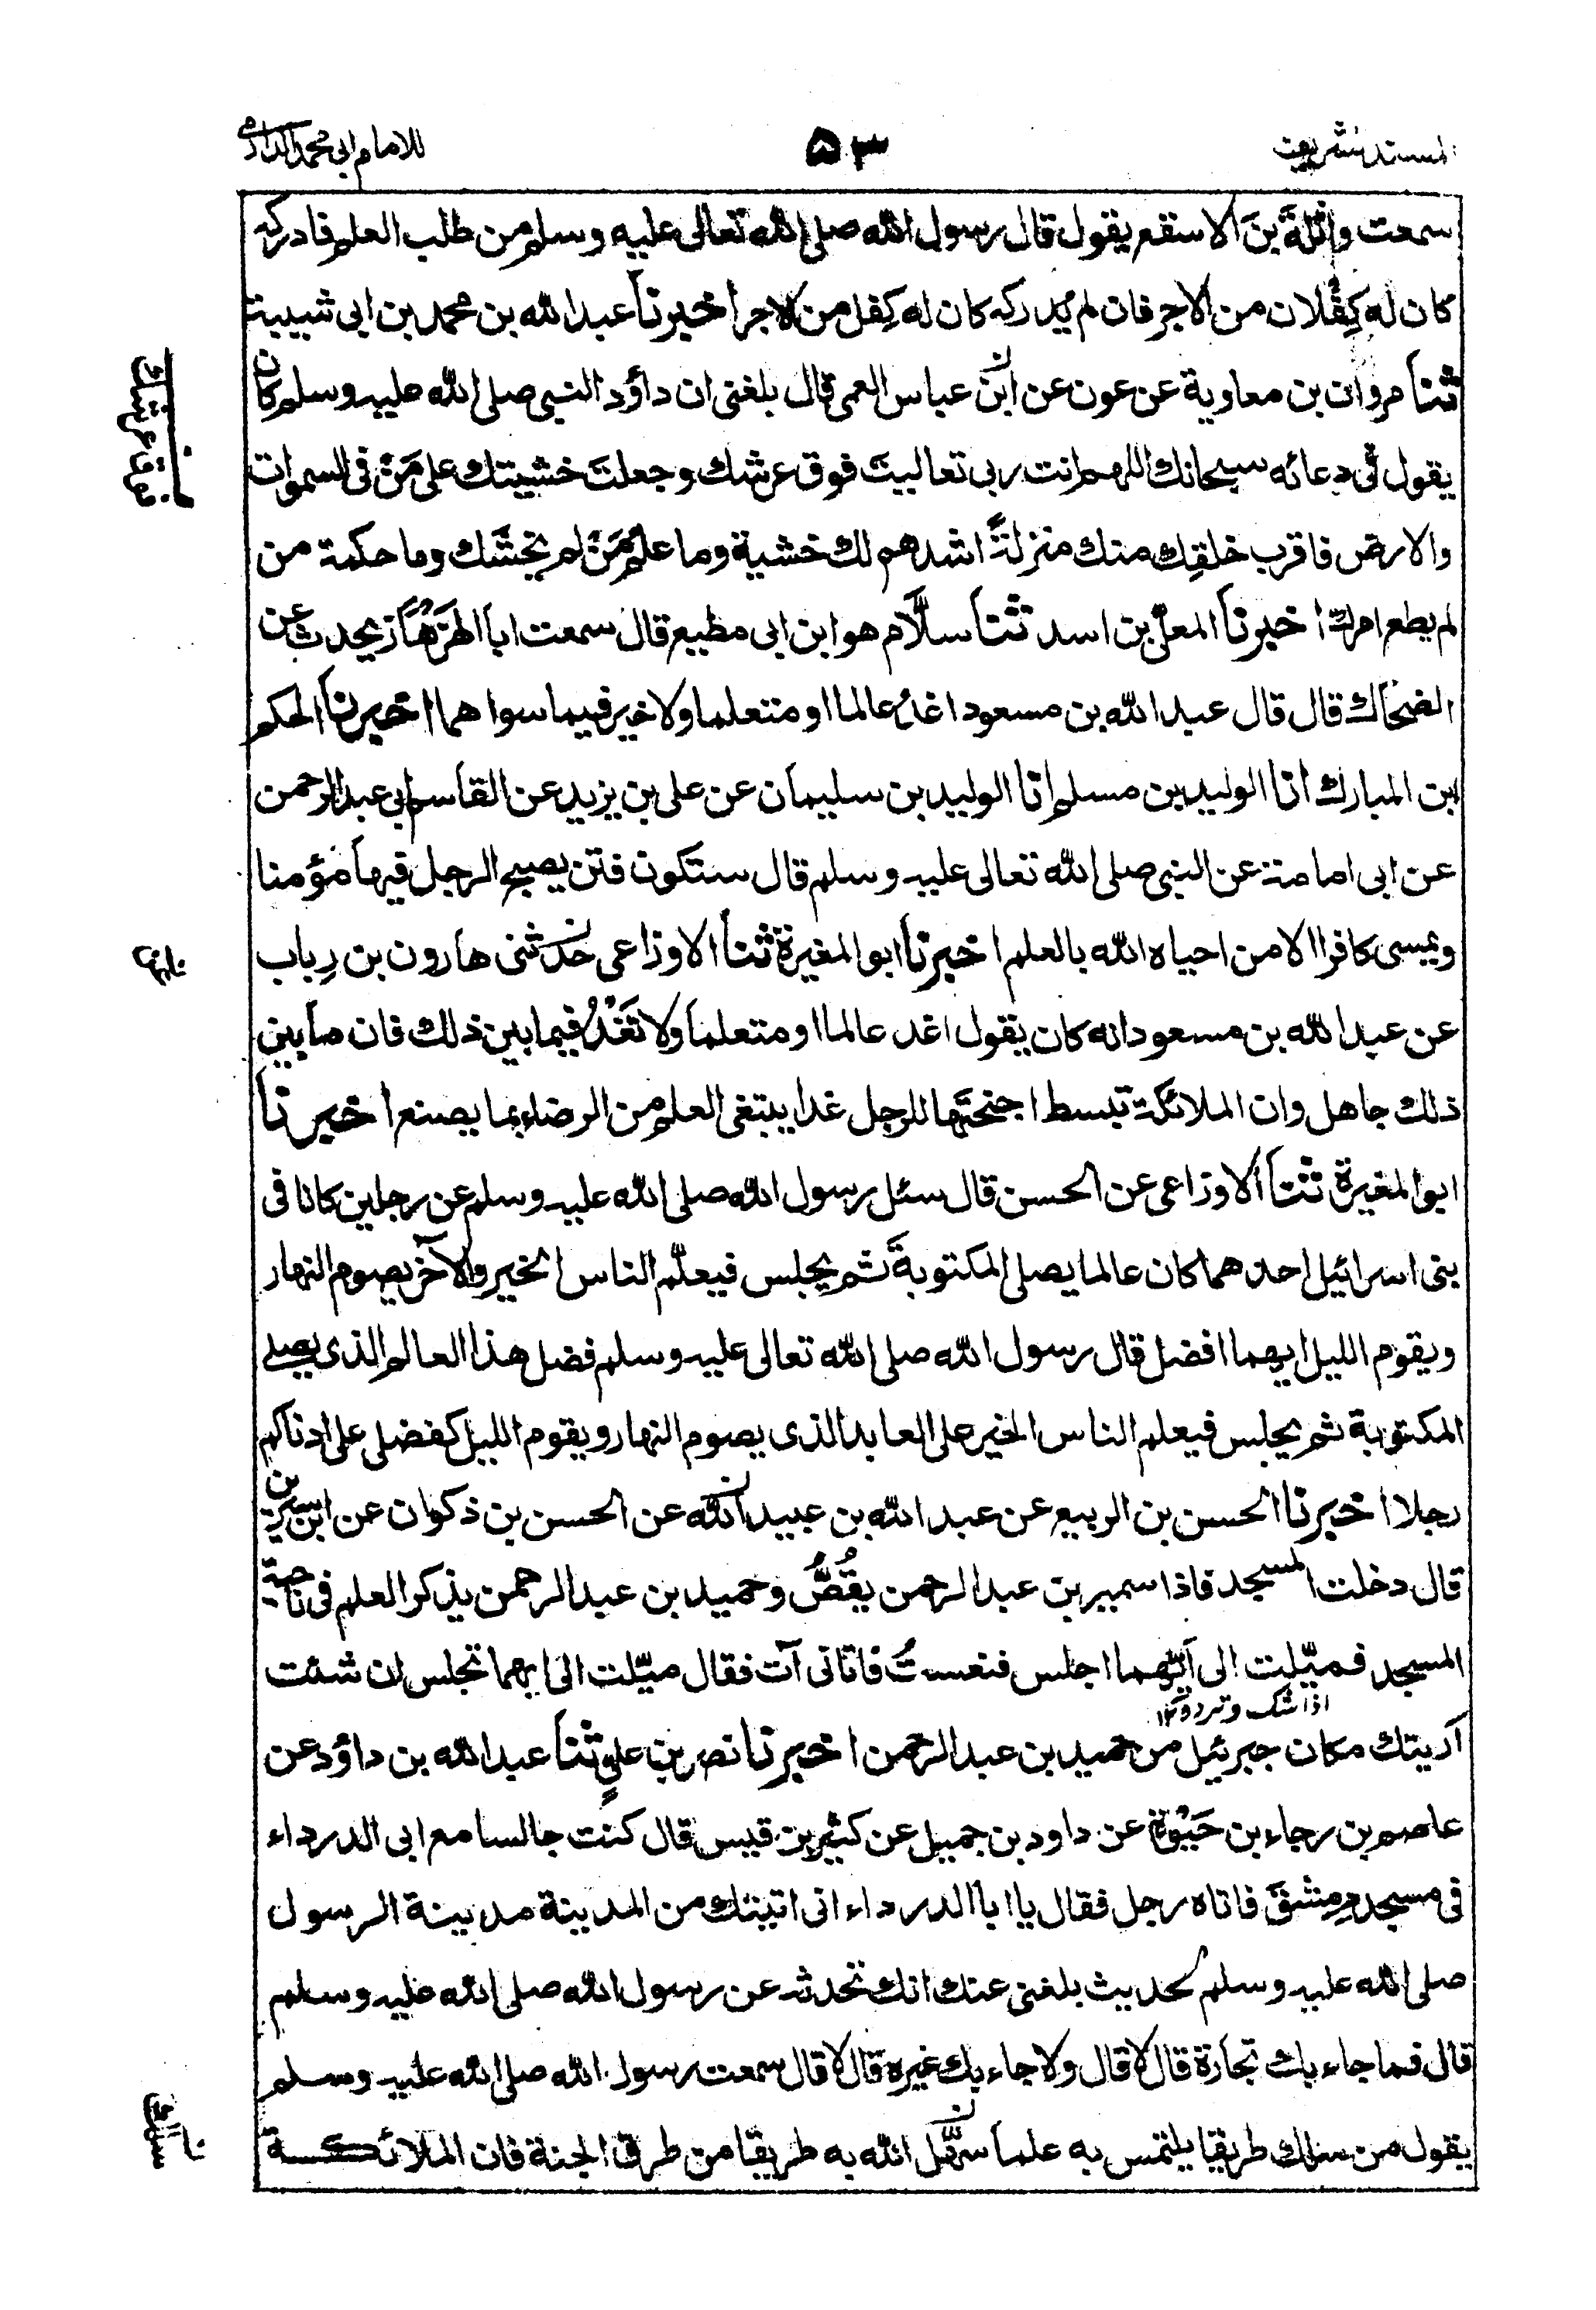 المسند شريف ٥٣ للامام ابي محمد الدارمي
سمعت واثلةَ بنَ الاسقع يقول قال رسول الله صلى الله تعالى عليه وسلم من طلب العلم فادركه
كان له كِفْلان من الاجر فان لم يُدركه كان له كِفل من الاجر اخبرنا عبد الله بن محمد بن ابى شيبة
ثنا مروان بن معاوية عن عون عن ابن عباس العمى قال بلغنى ان داؤد النبى صلى الله عليه وسلم كان
يقول فى دعائه سبحانك اللهم انت ربى تعاليتَ فوق عرشك وجعلتَ خشيتك على مَنْ فى السموات
والارض فاقرب خلقك منك منزلةً اشدهم لك خشية وما علمُ مَنْ لم يخشَك وما حكمة من
لم يطع امرك اخبرنا المعلّى بن اسد ثنا سلّام هو ابن ابى مطيع قال سمعت ابا الهَزْهَاز يحدث عن
الضحاك قال قال عبد الله بن مسعود اغدُ عالما او متعلما ولا خير فيما سواهما اخبرنا الحكم
ابن المبارك انا الوليد بن مسلم انا الوليد بن سليمان عن على بن يزيد عن القاسم ابى عبد الرحمن
عن ابى امامة عن النبى صلى الله تعالى عليه وسلم قال ستكون فتن يصبح الرجل فيها مؤمنا
ويمسى كافرا الا من احياه الله بالعلم اخبرنا ابو المغيرة ثنا الاوزاعى حدثنى هارون بن رِياب
عن عبد الله بن مسعود انه كان يقول اغد عالما او متعلما ولا تَغْدُ فيما بين ذلك فان ما بين
ذلك جاهل وان الملائكة تبسط اجنحتها للرجل غدا يبتغى العلم من الرضاء بما يصنع اخبرنا
ابو المغيرة ثنا الاوزاعى عن الحسن قال سئل رسول الله صلى الله عليه وسلم عن رجلين كانا فى
بنى اسرائيل احدهما كان عالما يصلى المكتوبةَ ثم يجلس فيعلّم الناس الخير والآخر يصوم النهار
ويقوم الليل ايهما افضل قال رسول الله صلى الله تعالى عليه وسلم فضل هذا العالم الذى يصلى
المكتوبة ثم يجلس فيعلم الناس الخير على العابد الذى يصوم النهار ويقوم الليل كفضلى على ادناكم
رجلا اخبرنا الحسن بن الربيع عن عبد الله بن عبيد الله عن الحسن بن ذكوان عن ابن سيرين
قال دخلت المسجد فاذا سمير بن عبد الرحمن يقُصُّ وحميد بن عبد الرحمن يذكر العلم فى ناحية
المسجد فميّلت الى اَيّهما اجلس فنعستُ فاتانى آت فقال ميّلت الى ايهما تجلس ان شئت
اذا شك وتردد ١٢
اَريتك مكان جبرئيل من حميد بن عبد الرحمن اخبرنا نصر بن علىٍ ثنا عبد الله بن داؤد عن
عاصم بن رجاء بن حَيْوَة عن داود بن جميل عن كثير بن قيس قال كنت جالسا مع ابى الدرداء
فى مسجد دِمِشقَ فاتاه رجل فقال يا ابا الدرداء انى اتيتك من المدينة مدينة الرسول
صلى الله عليه وسلم لحديث بلغنى عنك انك تحدثه عن رسول الله صلى الله عليه وسلم
قال فما جاء بك تجارة قال لا قال ولا جاء بك غيره قال لا قال سمعت رسول الله صلى الله عليه وسلم
يقول من سلك طريقا يلتمس به علما سهّل الله به طريقا من طرق الجنة فان الملائكة